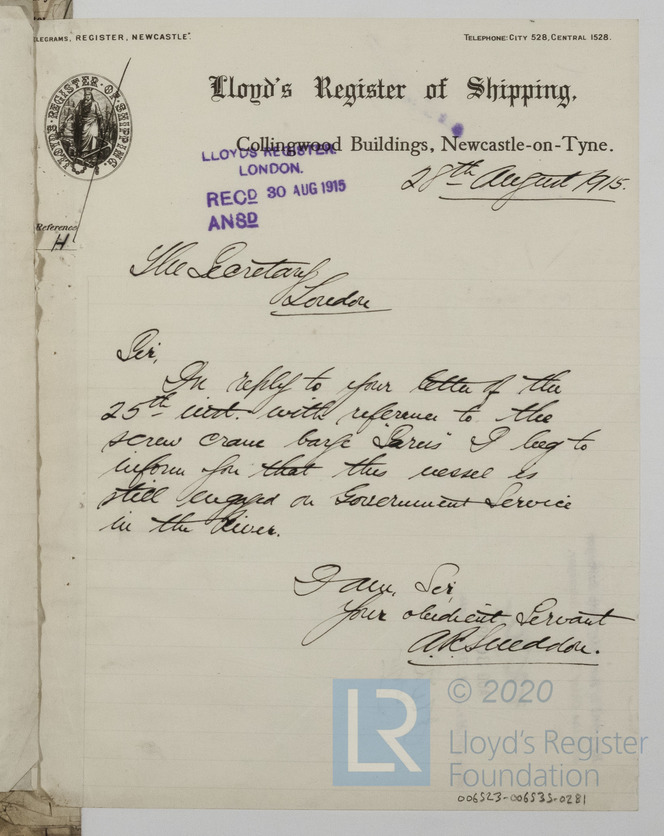 TELEGRAMS, REGISTER, NEWCASTLE".
TELEPHONE: CITY 528, CENTRAL 1528.
LLOYD'S REGISTER OF SHIPPING
Lloyd's Register of Shipping,
Collingwood Buildings, Newcastle-on-Tyne.
LLOYD'S REGISTER,
LONDON.
RECD 30 AUG 1915
ANSD
28th August 1915.
Reference
H
The Secretary
London
Sir,
In reply to your letter of the
25th inst. with reference to the
screw crane barge I beg to
inform you that this vessel is
still engaged on Government Service
in the River.
I am, Sir,
Your obedient Servant
LR
© 2020
Lloyd's Register
Foundation
006523-006535-0281